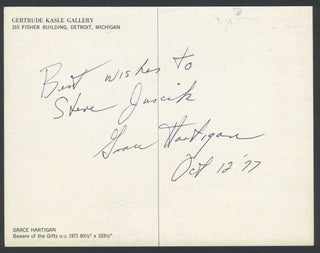 GERTRUDE KASLE GALLERY
310 FISHER BUILDING, DETROIT, MICHIGAN
Best wishes to
Steve Juscik
Grace Hartigan
Oct 12 '77
GRACE HARTIGAN
Beware of the Gifts o/c 1971 80½" x 103½"